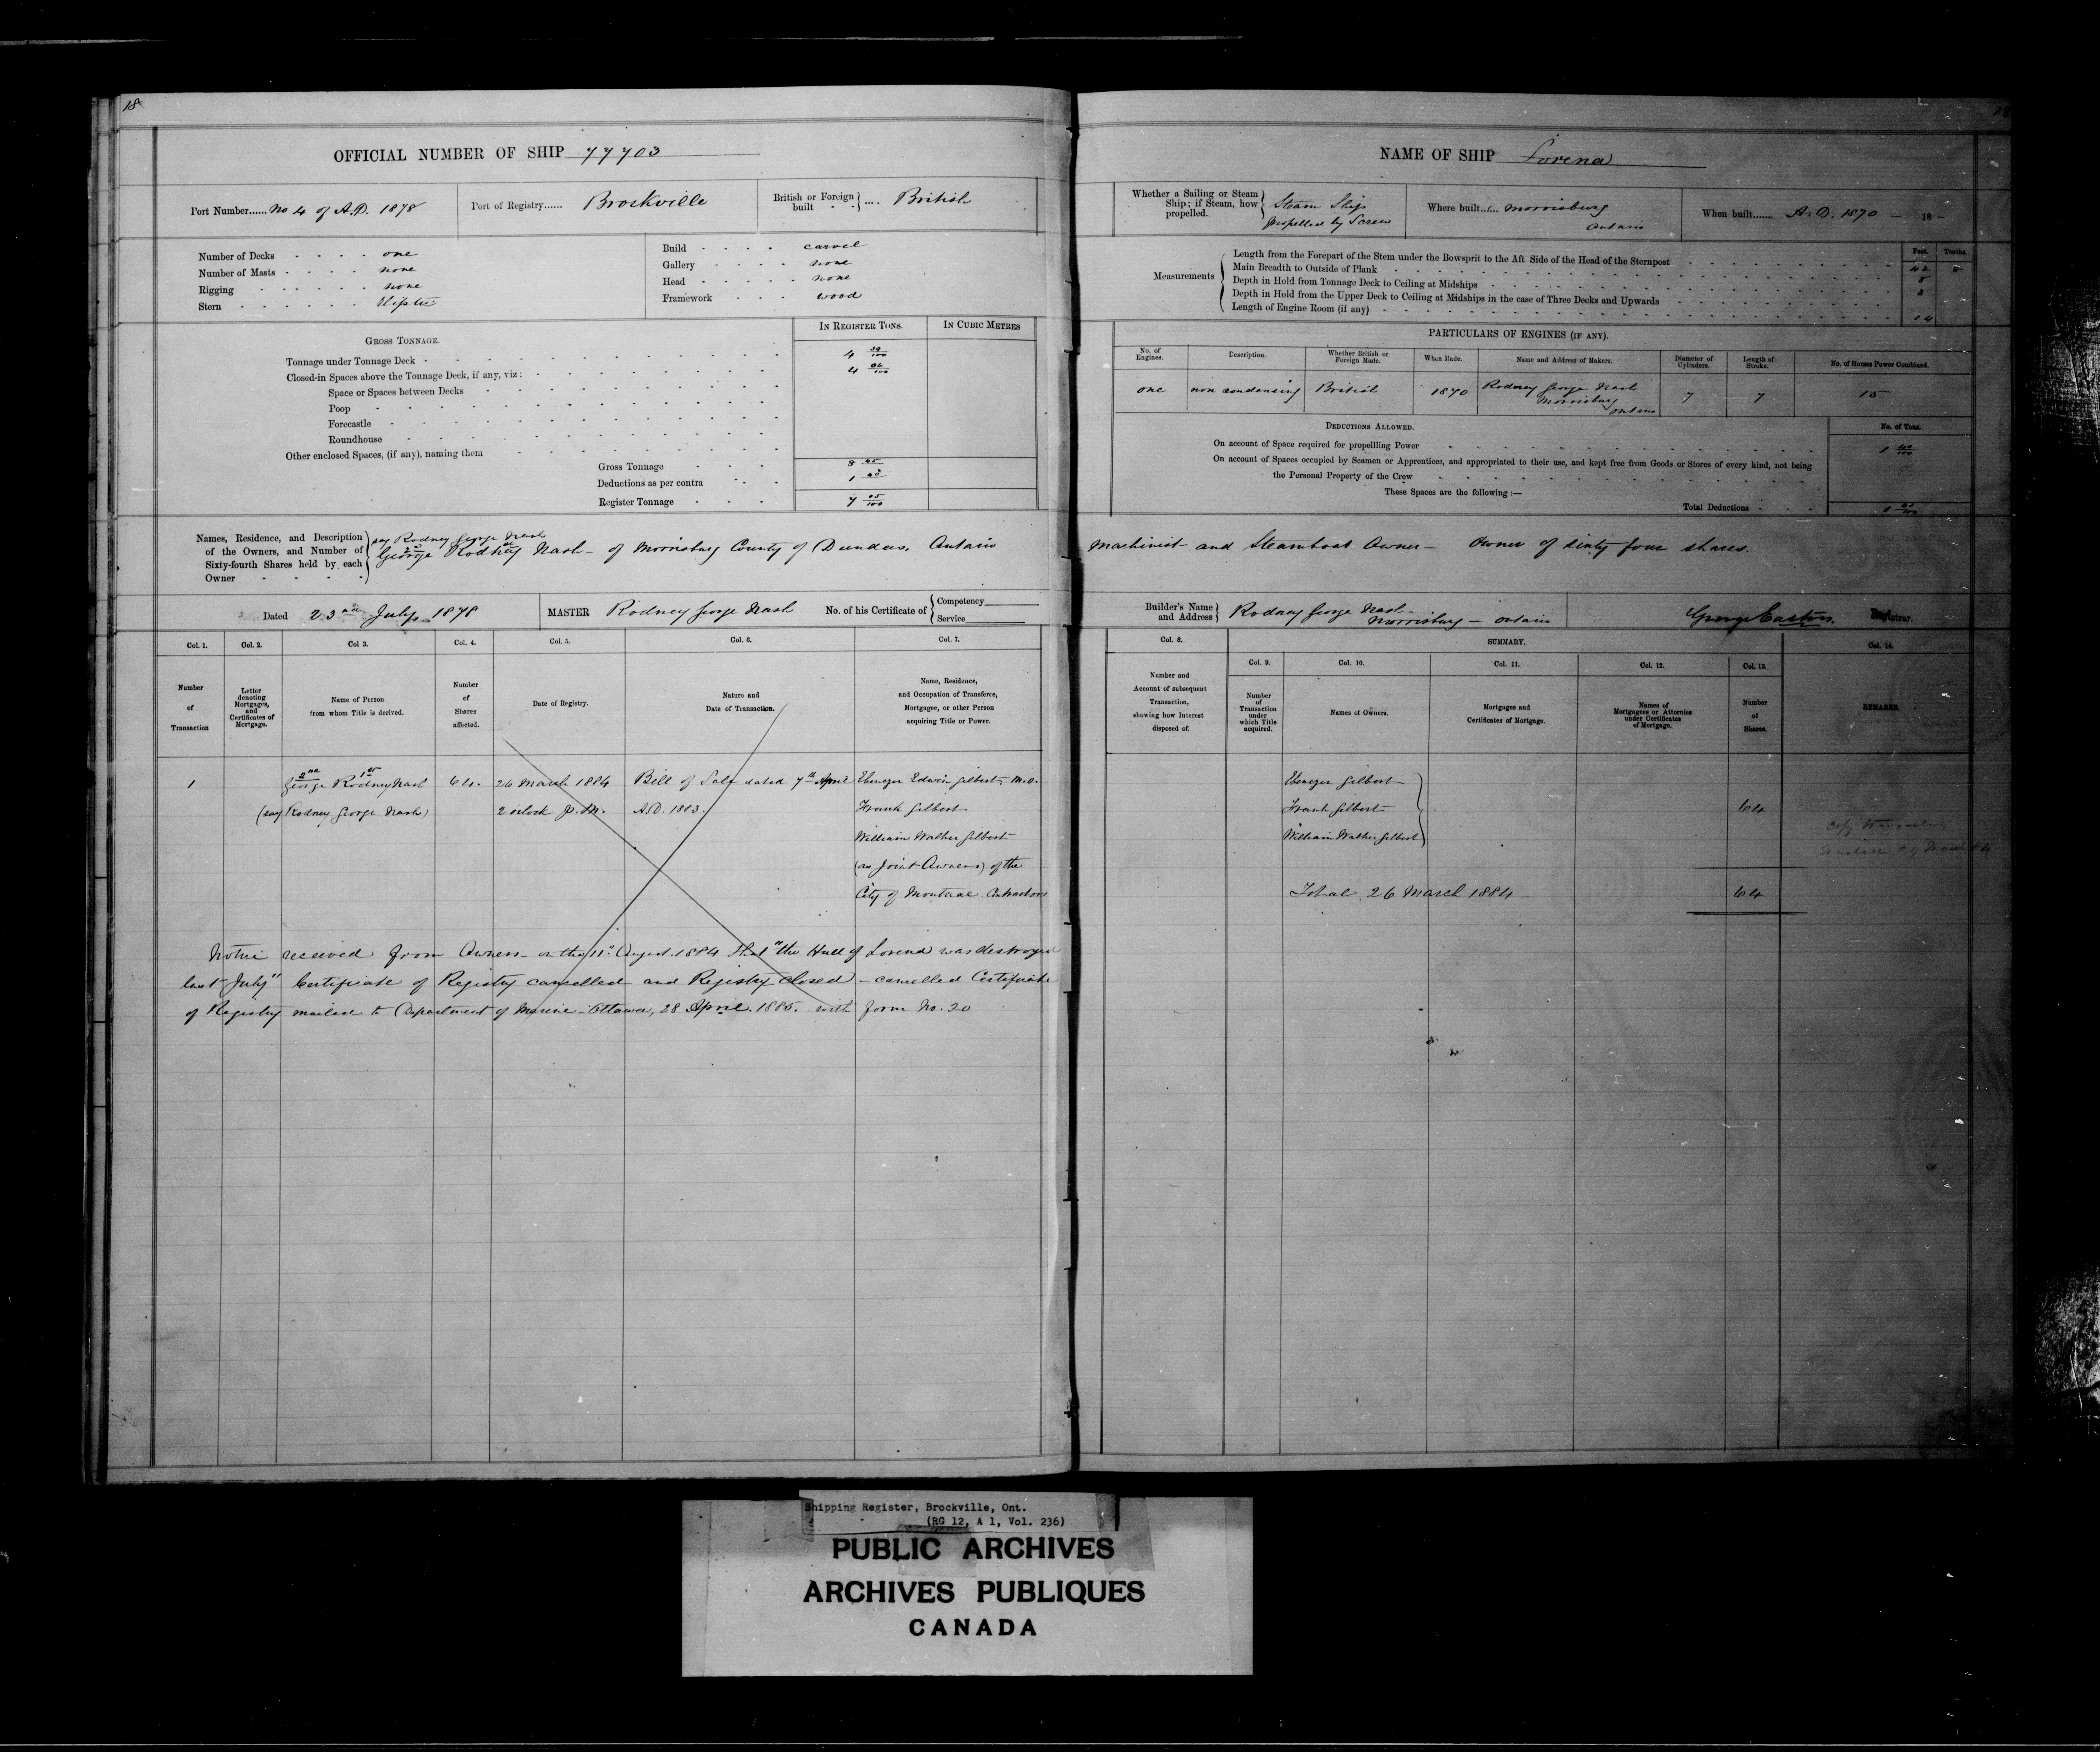 18
OFFICIAL NUMBER OF SHIP 77703
Port Number...... No 4 of A.D. 1878
Port of Registry...... Brockville
British or Foreign built .... British
Number of Decks one
Number of Masts none
Rigging none
Stern
Build carvel
Gallery none
Head none
Framework wood
GROSS TONNAGE.
IN REGISTER TONS. IN CUBIC METRES
Tonnage under Tonnage Deck 4 39/100
Closed-in Spaces above the Tonnage Deck, if any, viz: 4 06/100
Space or Spaces between Decks
Poop
Forecastle
Roundhouse
Other enclosed Spaces, (if any), naming them
Gross Tonnage 8 45
Deductions as per contra 1 40
Register Tonnage 7 05/100
Names, Residence, and Description of the Owners, and Number of Sixty-fourth Shares held by each Owner
say Rodney George Nash
George Rodney Nash - of Morrisburg County of Dundas, Ontario
Dated 23rd July 1878
MASTER Rodney George Nash
No. of his Certificate of Competency Service
Col. 1. Col. 2. Col 3. Col. 4. Col. 5. Col. 6. Col. 7.
Number of Transaction
Letter denoting Mortgages, and Certificates of Mortgage.
Name of Person from whom Title is derived.
Number of Shares affected.
Date of Registry.
Nature and Date of Transaction.
Name, Residence, and Occupation of Transferee, Mortgagee, or other Person acquiring Title or Power.
2nd 1st
1 George Rodney Nash 64. 26 March 1884 Bill of Sale dated 7th April Ebenezer Edwin Gilbert,
(say Rodney George Nash) 2 oclock P.M. A.D. 1883. Frank Gilbert
William Walter Gilbert
(as Joint Owners) of the
City of Montreal Contractors
Notice received from Owners on the 11th August 1884 that "the Hull of Lorena was destroyed
last July" Certificate of Registry cancelled and Registry closed - cancelled Certificate
of Registry mailed to Department of Marine - Ottawa, 28 April. 1885. with form No. 20
NAME OF SHIP Lorena
Whether a Sailing or Steam Ship; if Steam, how propelled.
Steam Ship
propelled by Screw
Where built...... Morrisburg
Ontario
When built...... A.D. 1870 - 18 -
Measurements
Feet. Tenths.
Length from the Forepart of the Stem under the Bowsprit to the Aft Side of the Head of the Sternpost 42 5
Main Breadth to Outside of Plank 8
Depth in Hold from Tonnage Deck to Ceiling at Midships 3
Depth in Hold from the Upper Deck to Ceiling at Midships in the case of Three Decks and Upwards
Length of Engine Room (if any) 14
PARTICULARS OF ENGINES (IF ANY).
No. of Engines. Description. Whether British or Foreign Made. When Made. Name and Address of Makers. Diameter of Cylinders. Length of Stroke. No. of Horses Power Combined.
one non condensing British 1870 Rodney George Nash Morrisburg Ontario 7 7 15
DEDUCTIONS ALLOWED.
No. of Tons.
On account of Space required for propellling Power 1 40/100
On account of Spaces occupied by Seamen or Apprentices, and appropriated to their use, and kept free from Goods or Stores of every kind, not being
the Personal Property of the Crew
These Spaces are the following :—
Total Deductions 1 40/100
Machinist and Steamboat Owner - Owner of sixty four shares.
Builder's Name and Address
Rodney George Nash -
Morrisburg - Ontario
George Easton. Registrar.
Col. 8. SUMMARY. Col. 14.
Col. 9. Col. 10. Col. 11. Col. 12. Col. 13.
Number and Account of subsequent Transaction, showing how Interest disposed of.
Number of Transaction under which Title acquired.
Names of Owners.
Mortgages and Certificates of Mortgage.
Names of Mortgagees or Attornies under Certificates of Mortgage.
Number of Shares.
REMARKS.
Ebenezer Gilbert
Frank Gilbert 64
William Walter Gilbert
Total 26 March 1884 64
Shipping Register, Brockville, Ont.
(RG 12, A 1, Vol. 236)
PUBLIC ARCHIVES
ARCHIVES PUBLIQUES
CANADA